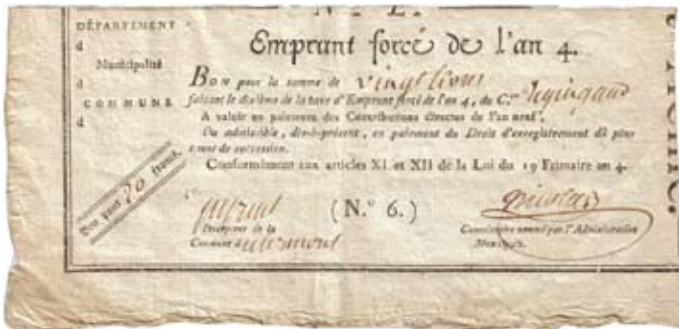 DÉPARTEMENT
d
Municipalité
d
COMMUNE
d
Emprunt forcé de l'an 4.
BON pour la somme de vingt livres
faisant le dixième de la taxe d'Emprunt forcé de l'an 4, du C.en
A valoir en paiement des Contributions directes de l'an neuf,
Ou admissible, dès-à-présent, en paiement du Droit d'enregistrement dû pour
cause de succession.
Conformément aux articles XI et XII de la Loi du 19 Frimaire an 4.
Bon pour 20 francs.
(N.° 6.)
Percepteur de la
Commune d
Commissaire nommé par l'Administration
Municipale.